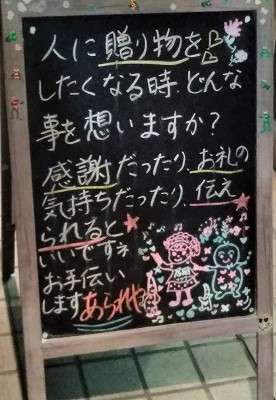 人に贈り物を
したくなる時、どんな
事を想いますか?
感謝だったり、お礼の
気持ちだったり、伝え
られると
いいですネ
お手伝い
します あられや